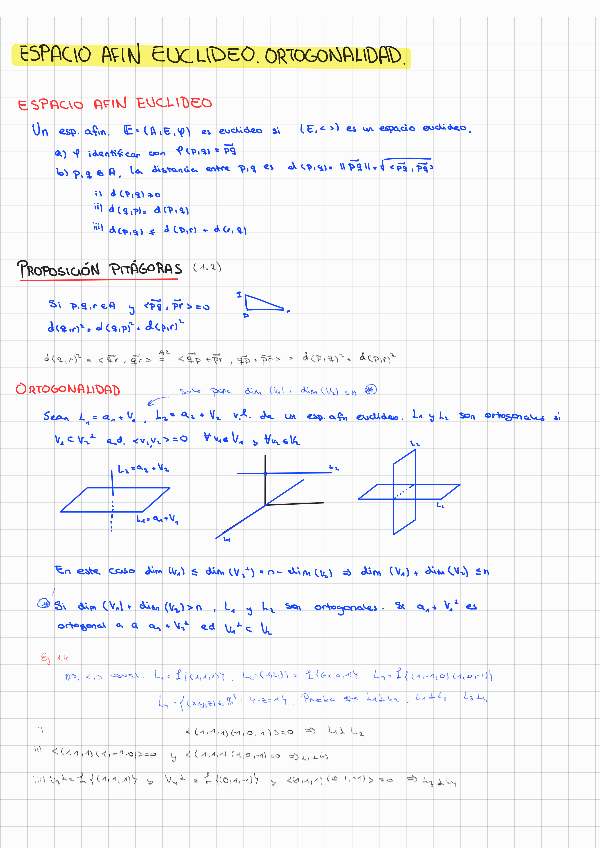 ESPACIO AFIN EUCLIDEO. ORTOGONALIDAD.
ESPACIO AFIN EUCLIDEO
Un esp. afin. E = (A, E, φ) es euclideo si (E, < >) es un espacio euclideo.
a) φ identificar con φ(p,q) = pq
b) p,q ∈ A, la distancia entre p,q es d(p,q) = ||pq|| = √<pq, pq>
i) d(p,q) ≥ 0
ii) d(q,p) = d(p,q)
iii) d(p,q) ≤ d(p,r) + d(r,q)
PROPOSICIÓN PITÁGORAS (1.2)
Si p,q,r ∈ A y <pq, pr> = 0
d(q,r)² = d(q,p)² + d(p,r)²
d(q,r)² = <qr, qr> = <qp + pr, qp + pr> = d(p,q)² + d(p,r)²
ORTOGONALIDAD
solo para dim (V₁) + dim (V₂) ≤ n
Sean L₁ = a₁ + V₁, L₂ = a₂ + V₂ v.l. de un esp. afin euclideo. L₁ y L₂ son ortogonales si
V₁ ⊂ V₂⊥ e.d. <v₁, v₂> = 0 ∀ v₁ ∈ V₁ y ∀ v₂ ∈ V₂
L₂
L₂ = a₂ + V₂
L₂
L₁ = a₁ + V₁
L₁
L₁
En este caso dim (V₁) ≤ dim (V₂⊥) = n - dim (V₂) ⇒ dim (V₁) + dim (V₂) ≤ n
Si dim (V₁) + dim (V₂) > n, L₁ y L₂ son ortogonales. Si a₁ + V₁⊥ es
ortogonal a a a₂ + V₂⊥ ed V₁⊥ ⊂ V₂
Ej 1.4
usual.
Prueba que L₁ ⊥ L₂
<(1,1,1)(-1,0,1)> = 0 ⇒ L₁ ⊥ L₂
ii) <(1,1,1)(1,-1,0)> = 0 y <(1,1,1)(1,0,-1)> = 0 ⇒